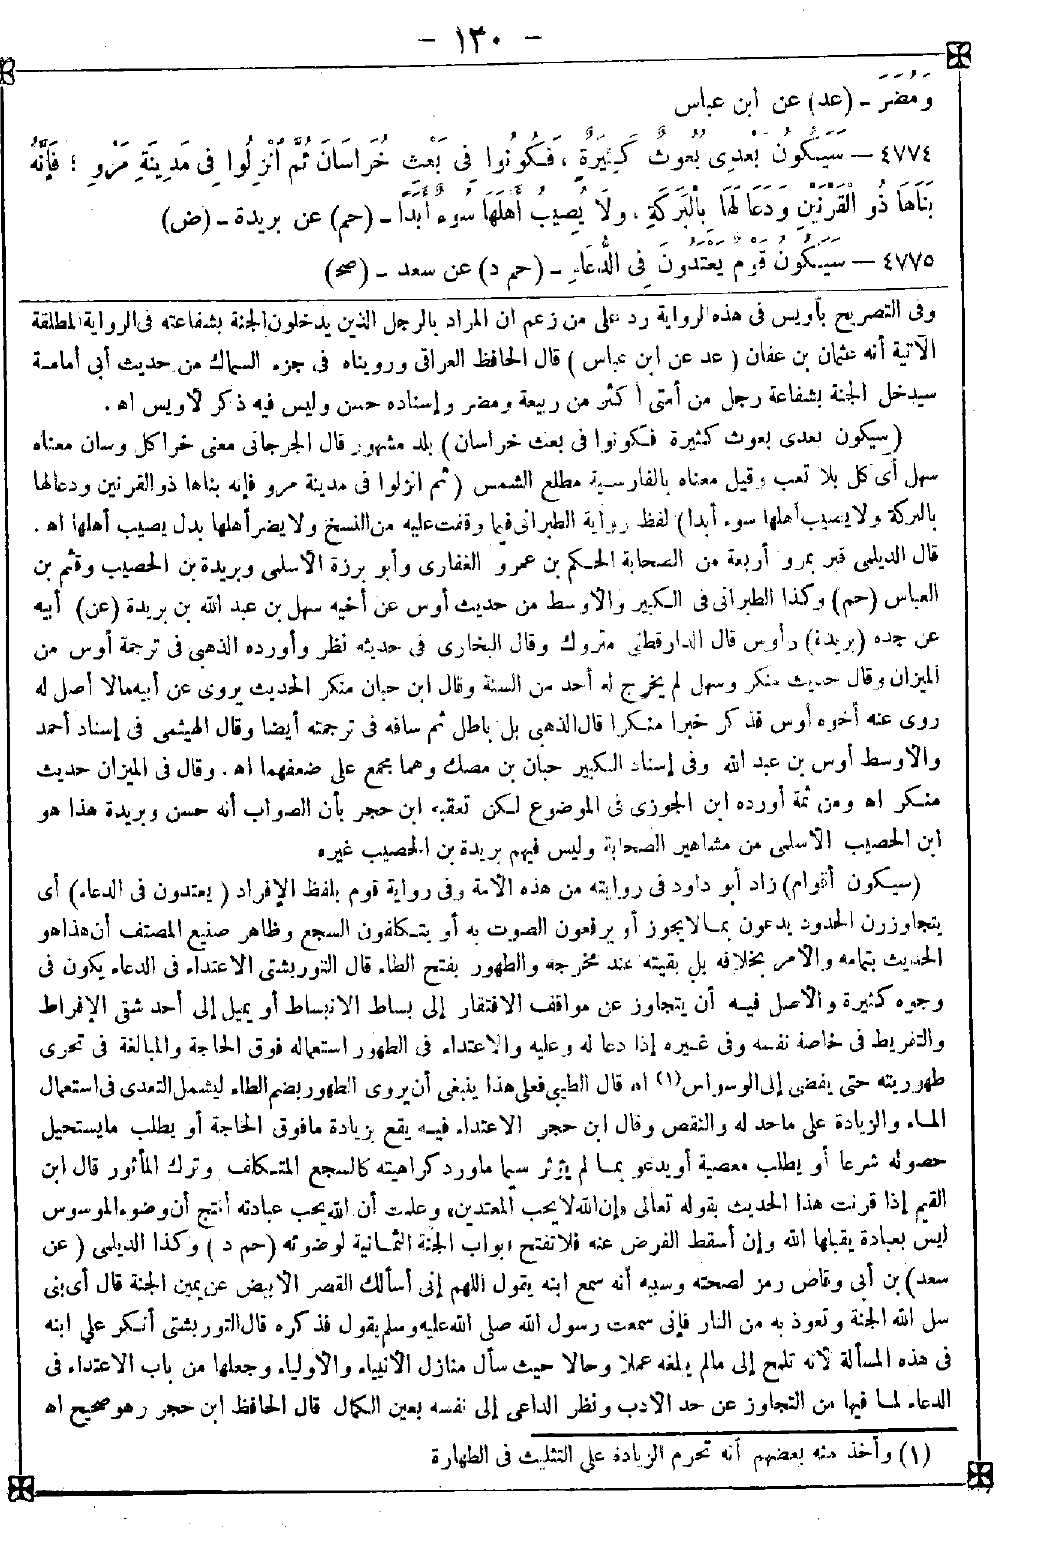 - ١٣٠ -
وَمُضَرَ - (عد) عن ابن عباس
٤٧٧٤ - سَيَكُونُ بَعْدِى بُعُوثٌ كَثِيرَةٌ ، فَكُونُوا فِى بَعْثِ خُرَاسَانَ ثُمَّ انْزِلُوا فِى مَدِينَةِ مَرْوِ ؛ فَإِنَّهُ
بَنَاهَا ذُو الْقَرْنَيْنِ وَدَعَا لَهَا بِالْبَرَكَةِ ، وَلَا يُصِيبُ أَهْلَهَا سُوءٌ أَبَدًا - (حم) عن بريدة - (ض)
٤٧٧٥ - سَيَكُونُ قَوْمٌ يَعْتَدُونَ فِى الدُّعَاءِ - (حم د) عن سعد - (صح)
وفى التصريح بأويس فى هذه الرواية رد على من زعم ان المراد بالرجل الذين يدخلون الجنة بشفاعته فى الرواية المطلقة
الآتية أنه عثمان بن عفان ( عد عن ابن عباس ) قال الحافظ العراقى ورويناه فى جزء السماك من حديث أبى أمامة
سيدخل الجنة بشفاعة رجل من أمتى أكثر من ربيعة ومضر وإسناده حسن وليس فيه ذكر لأويس اه .
(سيكون بعدى بعوث كثيرة فكونوا فى بعث خراسان) بلد مشهور قال الجرجانى معنى خراكل وسان معناه
سهل أى كل بلا تعب وقيل معناه بالفارسية مطلع الشمس ( ثم انزلوا فى مدينة مرو فإنه بناها ذو القرنين ودعا لها
بالبركة ولا يصيب أهلها سوء أبدا) لفظ رواية الطبرانى فيما وقفت عليه من النسخ ولا يضر أهلها بدل يصيب أهلها اه .
قال الديلمى قبر بمرو أربعة من الصحابة الحكم بن عمرو الغفارى وأبو برزة الأسلمى وبريدة بن الحصيب وقثم بن
العباس (حم) وكذا الطبرانى فى الكبير والأوسط من حديث أوس عن أخيه سهل بن عبد الله بن بريدة (عن) أبيه
عن جده (بريدة) وأوس قال الدارقطنى متروك وقال البخارى فى حديثه نظر وأورده الذهبى فى ترجمة أوس من
الميزان وقال حديث منكر وسهل لم يخرج له أحد من الستة وقال ابن حبان منكر الحديث يروى عن أبيه مالا أصل له
روى عنه أخوه أوس فذكر خبرا منكرا قال الذهبى بل باطل ثم ساقه فى ترجمته أيضا وقال الهيثمى فى إسناد أحمد
والأوسط أوس بن عبد الله وفى إسناد الكبير حبان بن مصك وهما مجمع على ضعفهما اه . وقال فى الميزان حديث
منكر اه ومن ثمة أورده ابن الجوزى فى الموضوع لكن تعقبه ابن حجر بأن الصواب أنه حسن وبريدة هذا هو
ابن الحصيب الأسلمى من مشاهير الصحابة وليس فيهم بريدة بن الحصيب غيره
(سيكون أقوام) زاد أبو داود فى روايته من هذه الأمة وفى رواية قوم بلفظ الإفراد ( يعتدون فى الدعاء) أى
يتجاوزون الحدود يدعون بما لا يجوز أو يرفعون الصوت به أو يتكلفون السجع وظاهر صنيع المصنف أن هذا هو
الحديث بتمامه والأمر بخلافه بل بقيته عند مخرجه والطهور بفتح الطاء قال التوربشتى الاعتداء فى الدعاء يكون فى
وجوه كثيرة والأصل فيه أن يتجاوز عن مواقف الافتقار إلى بساط الانبساط أو يميل إلى أحد شقى الإفراط
والتفريط فى خاصة نفسه وفى غيره إذا دعا له وعليه والاعتداء فى الطهور استعماله فوق الحاجة والمبالغة فى تحرى
طهوريته حتى يفضى إلى الوسواس (١) اه قال الطيبى فعلى هذا ينبغى أن يروى الطهور بضم الطاء ليشمل التعدى فى استعمال
الماء والزيادة على ماحد له والنقص وقال ابن حجر الاعتداء فيه يقع بزيادة مافوق الحاجة أو يطلب مايستحيل
حصوله شرعا أو يطلب معصية أو يدعو بما لم يؤثر سيما ماورد كراهيته كالسجع المتكلف وترك المأثور قال ابن
القيم إذا قرنت هذا الحديث بقوله تعالى «إن الله لا يحب المعتدين» وعلمت أن الله يحب عبادته أنتج أن وضوء الموسوس
ليس بعبادة يقبلها الله وإن أسقط الفرض عنه فلا تفتح أبواب الجنة الثمانية لوضوئه (حم د ) وكذا الديلمى ( عن
سعد) بن أبى وقاص رمز لصحته وسببه أنه سمع ابنه يقول اللهم إنى أسألك القصر الأبيض عن يمين الجنة قال أى بنى
سل الله الجنة وتعوذ به من النار فإنى سمعت رسول الله صلى الله عليه وسلم يقول فذكره قال التوربشتى أنكر على ابنه
فى هذه المسألة لأنه تلمح إلى مالم يبلغه عملا وحالا حيث سأل منازل الأنبياء والأولياء وجعلها من باب الاعتداء فى
الدعاء لما فيها من التجاوز عن حد الأدب ونظر الداعى إلى نفسه بعين الكمال قال الحافظ ابن حجر وهو صحيح اه
(١) وأخذ منه بعضهم أنه تحرم الزيادة على التثليث فى الطهارة